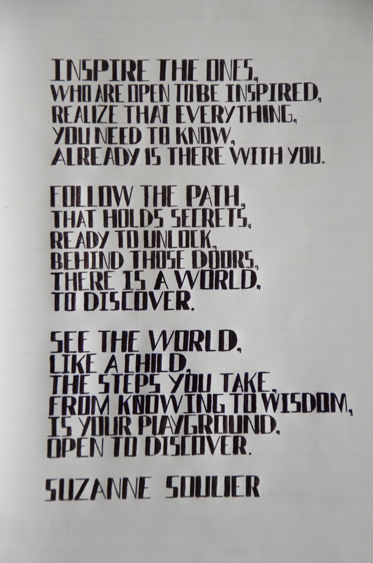 INSPIRE THE ONES,
WHO ARE OPEN TO BE INSPIRED,
REALIZE THAT EVERYTHING,
YOU NEED TO KNOW,
ALREADY IS THERE WITH YOU.
FOLLOW THE PATH,
THAT HOLDS SECRETS,
READY TO UNLOCK,
BEHIND THOSE DOORS,
THERE IS A WORLD,
TO DISCOVER.
SEE THE WORLD,
LIKE A CHILD,
THE STEPS YOU TAKE,
FROM KNOWING TO WISDOM,
IS YOUR PLAYGROUND,
OPEN TO DISCOVER.
SUZANNE SOULIER